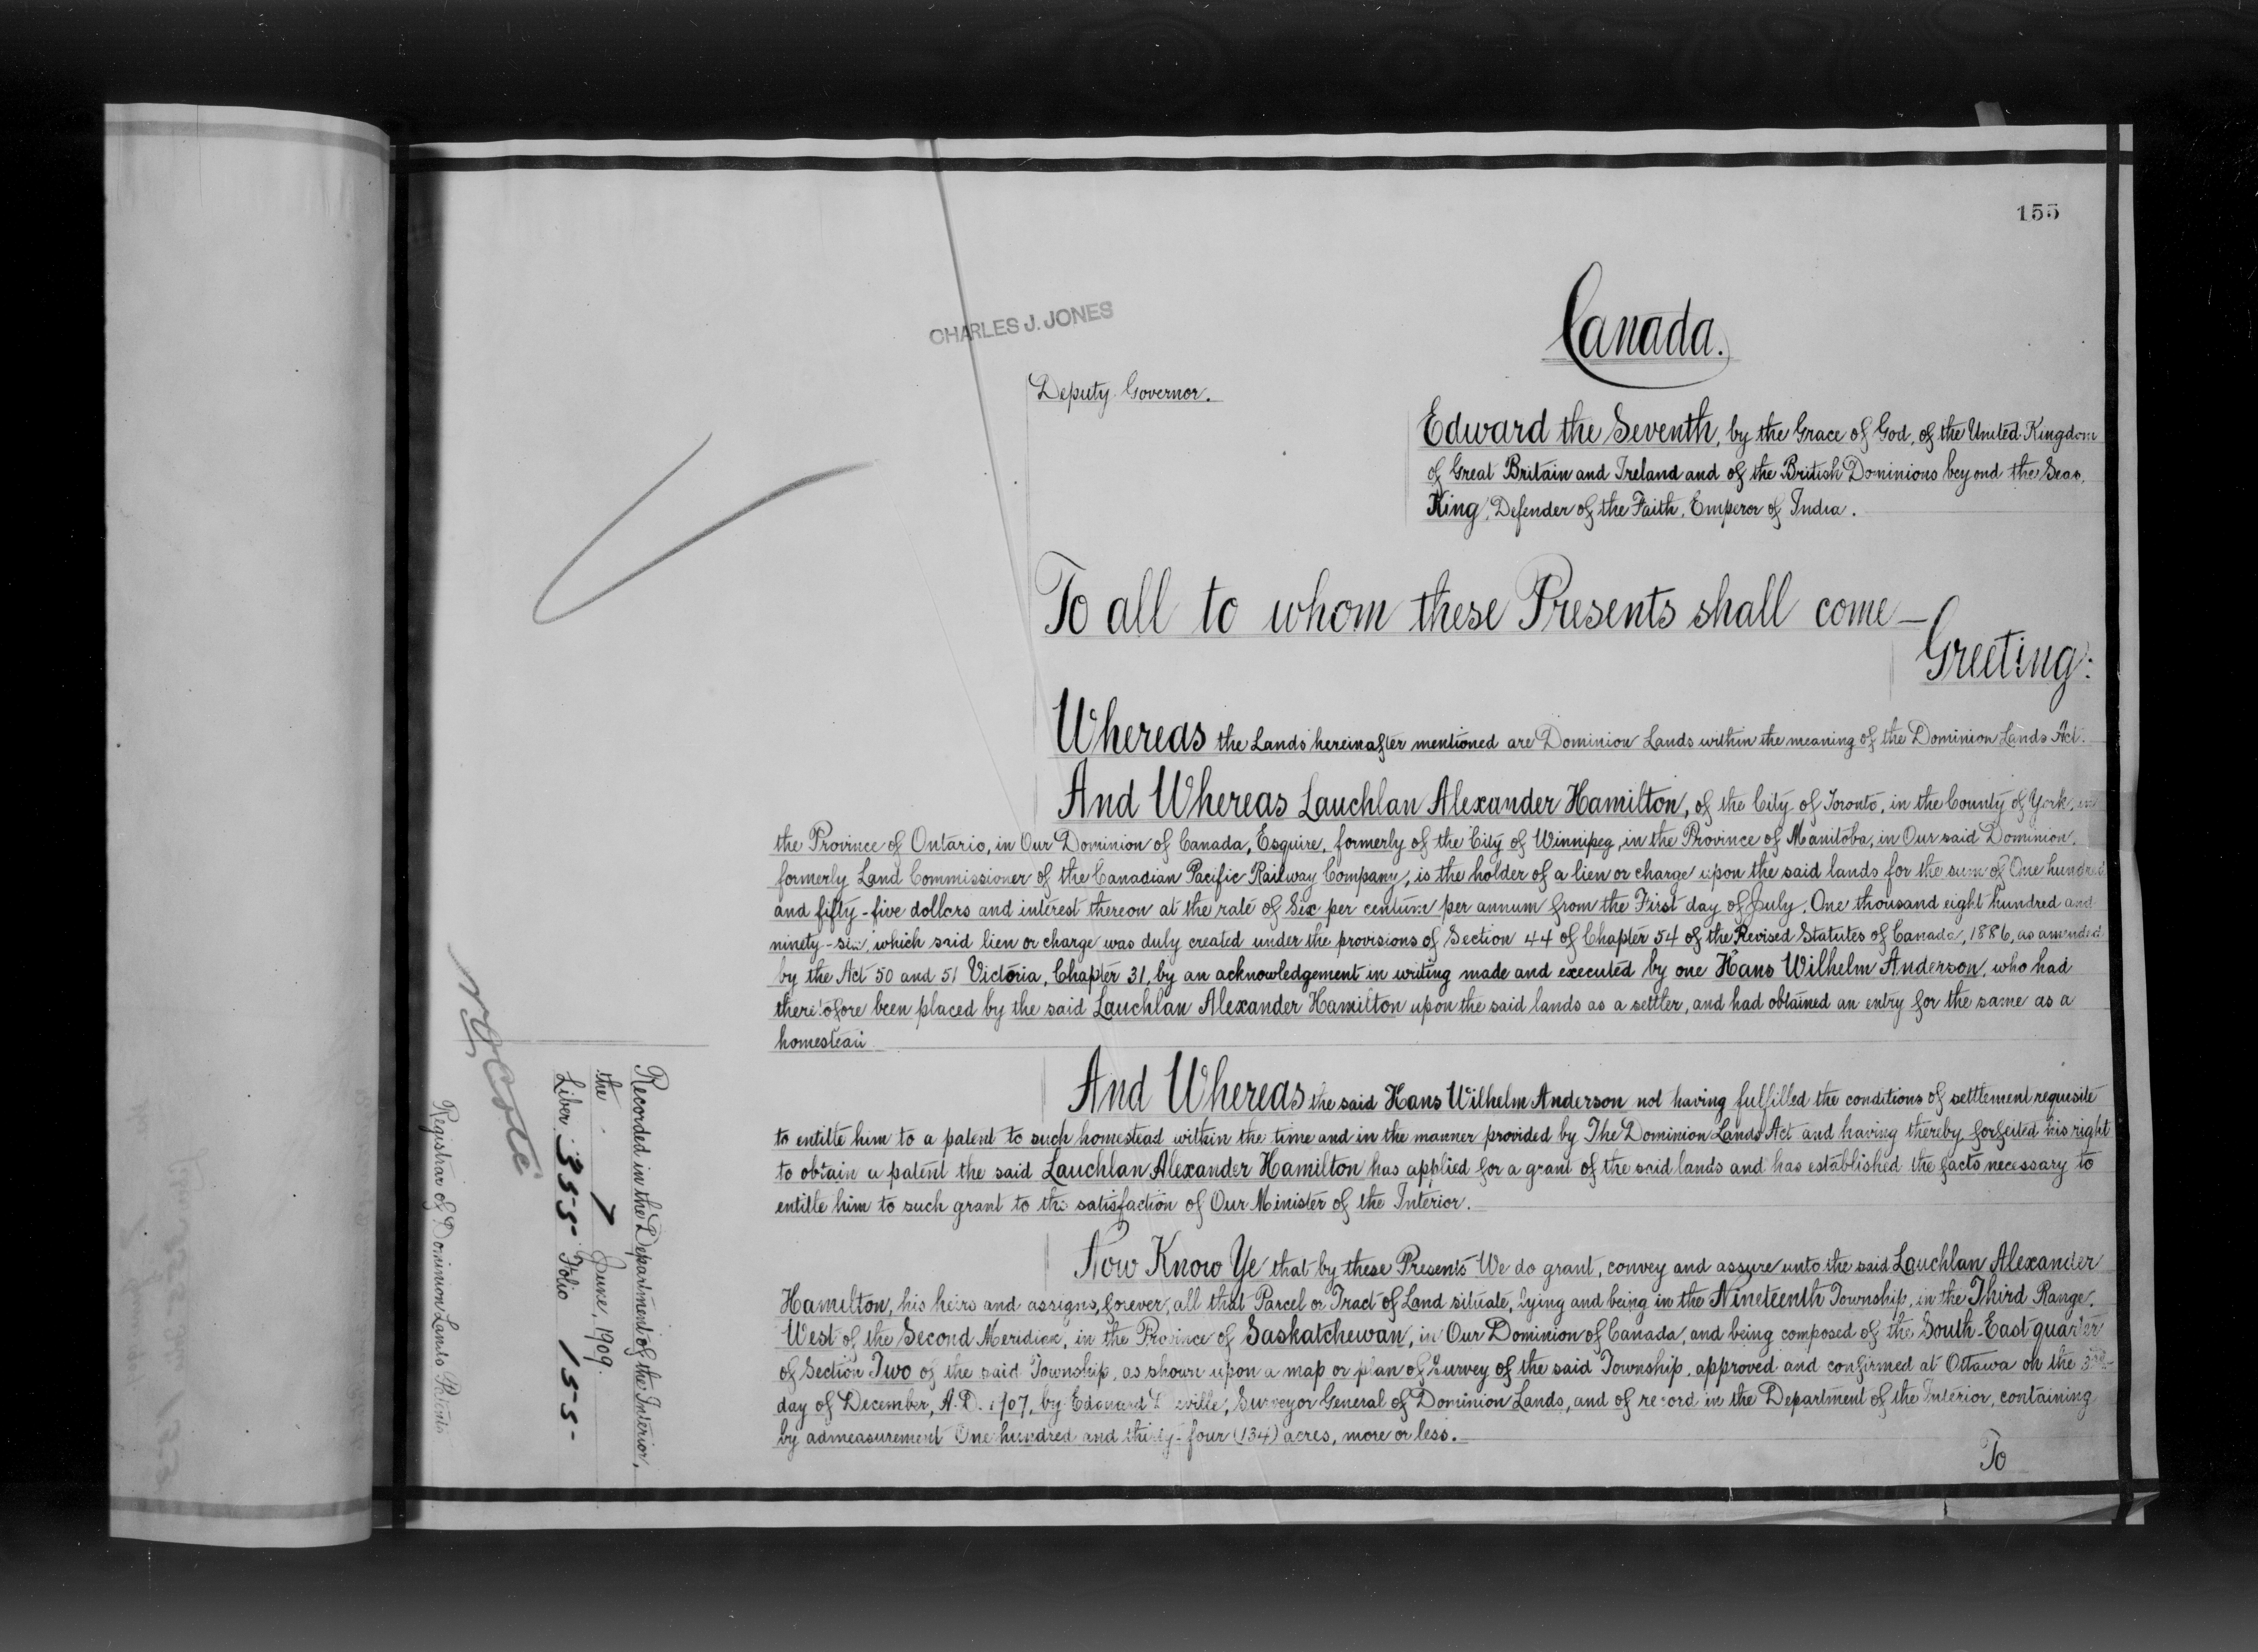 155
Canada.
CHARLES J. JONES
Deputy Governor.
Edward the Seventh, by the Grace of God, of the United Kingdom
of Great Britain and Ireland and of the British Dominions beyond the Seas,
King, Defender of the Faith, Emperor of India.
To all to whom these Presents shall come—
Greeting:
Whereas the Lands hereinafter mentioned are Dominion Lands within the meaning of the Dominion Lands Act.
And Whereas Lauchlan Alexander Hamilton, of the City of Toronto, in the County of York, in
the Province of Ontario, in Our Dominion of Canada, Esquire, formerly of the City of Winnipeg, in the Province of Manitoba, in Our said Dominion,
formerly Land Commissioner of the Canadian Pacific Railway Company, is the holder of a lien or charge upon the said lands for the sum of One hundred
and fifty-five dollars and interest thereon at the rate of Six per centum per annum from the First day of July, One thousand eight hundred and
ninety-six, which said lien or charge was duly created under the provisions of Section 44 of Chapter 54 of the Revised Statutes of Canada, 1886, as amended
by the Act 50 and 51 Victoria, Chapter 31, by an acknowledgement in writing made and executed by one Hans Wilhelm Anderson, who had
theretofore been placed by the said Lauchlan Alexander Hamilton upon the said lands as a settler, and had obtained an entry for the same as a
homestead
And Whereas the said Hans Wilhelm Anderson not having fulfilled the conditions of settlement requisite
to entitle him to a patent to such homestead within the time and in the manner provided by The Dominion Lands Act and having thereby forfeited his right
to obtain a patent the said Lauchlan Alexander Hamilton has applied for a grant of the said lands and has established the facts necessary to
entitle him to such grant to the satisfaction of Our Minister of the Interior.
Now Know Ye that by these Presents We do grant, convey and assure unto the said Lauchlan Alexander
Hamilton, his heirs and assigns, forever, all that Parcel or Tract of Land situate, lying and being in the Nineteenth Township, in the Third Range,
West of the Second Meridian, in the Province of Saskatchewan, in Our Dominion of Canada, and being composed of the South-East quarter
of Section Two of the said Township, as shown upon a map or plan of Survey of the said Township, approved and confirmed at Ottawa on the
day of December, A.D. 1907, by Edouard Deville, Surveyor General of Dominion Lands, and of record in the Department of the Interior, containing
by admeasurement One hundred and thirty-four (134) acres, more or less.
To
Recorded in the Department of the Interior,
the 7 June, 1909.
Liber 355 Folio 155
Registrar of Dominion Lands Patents